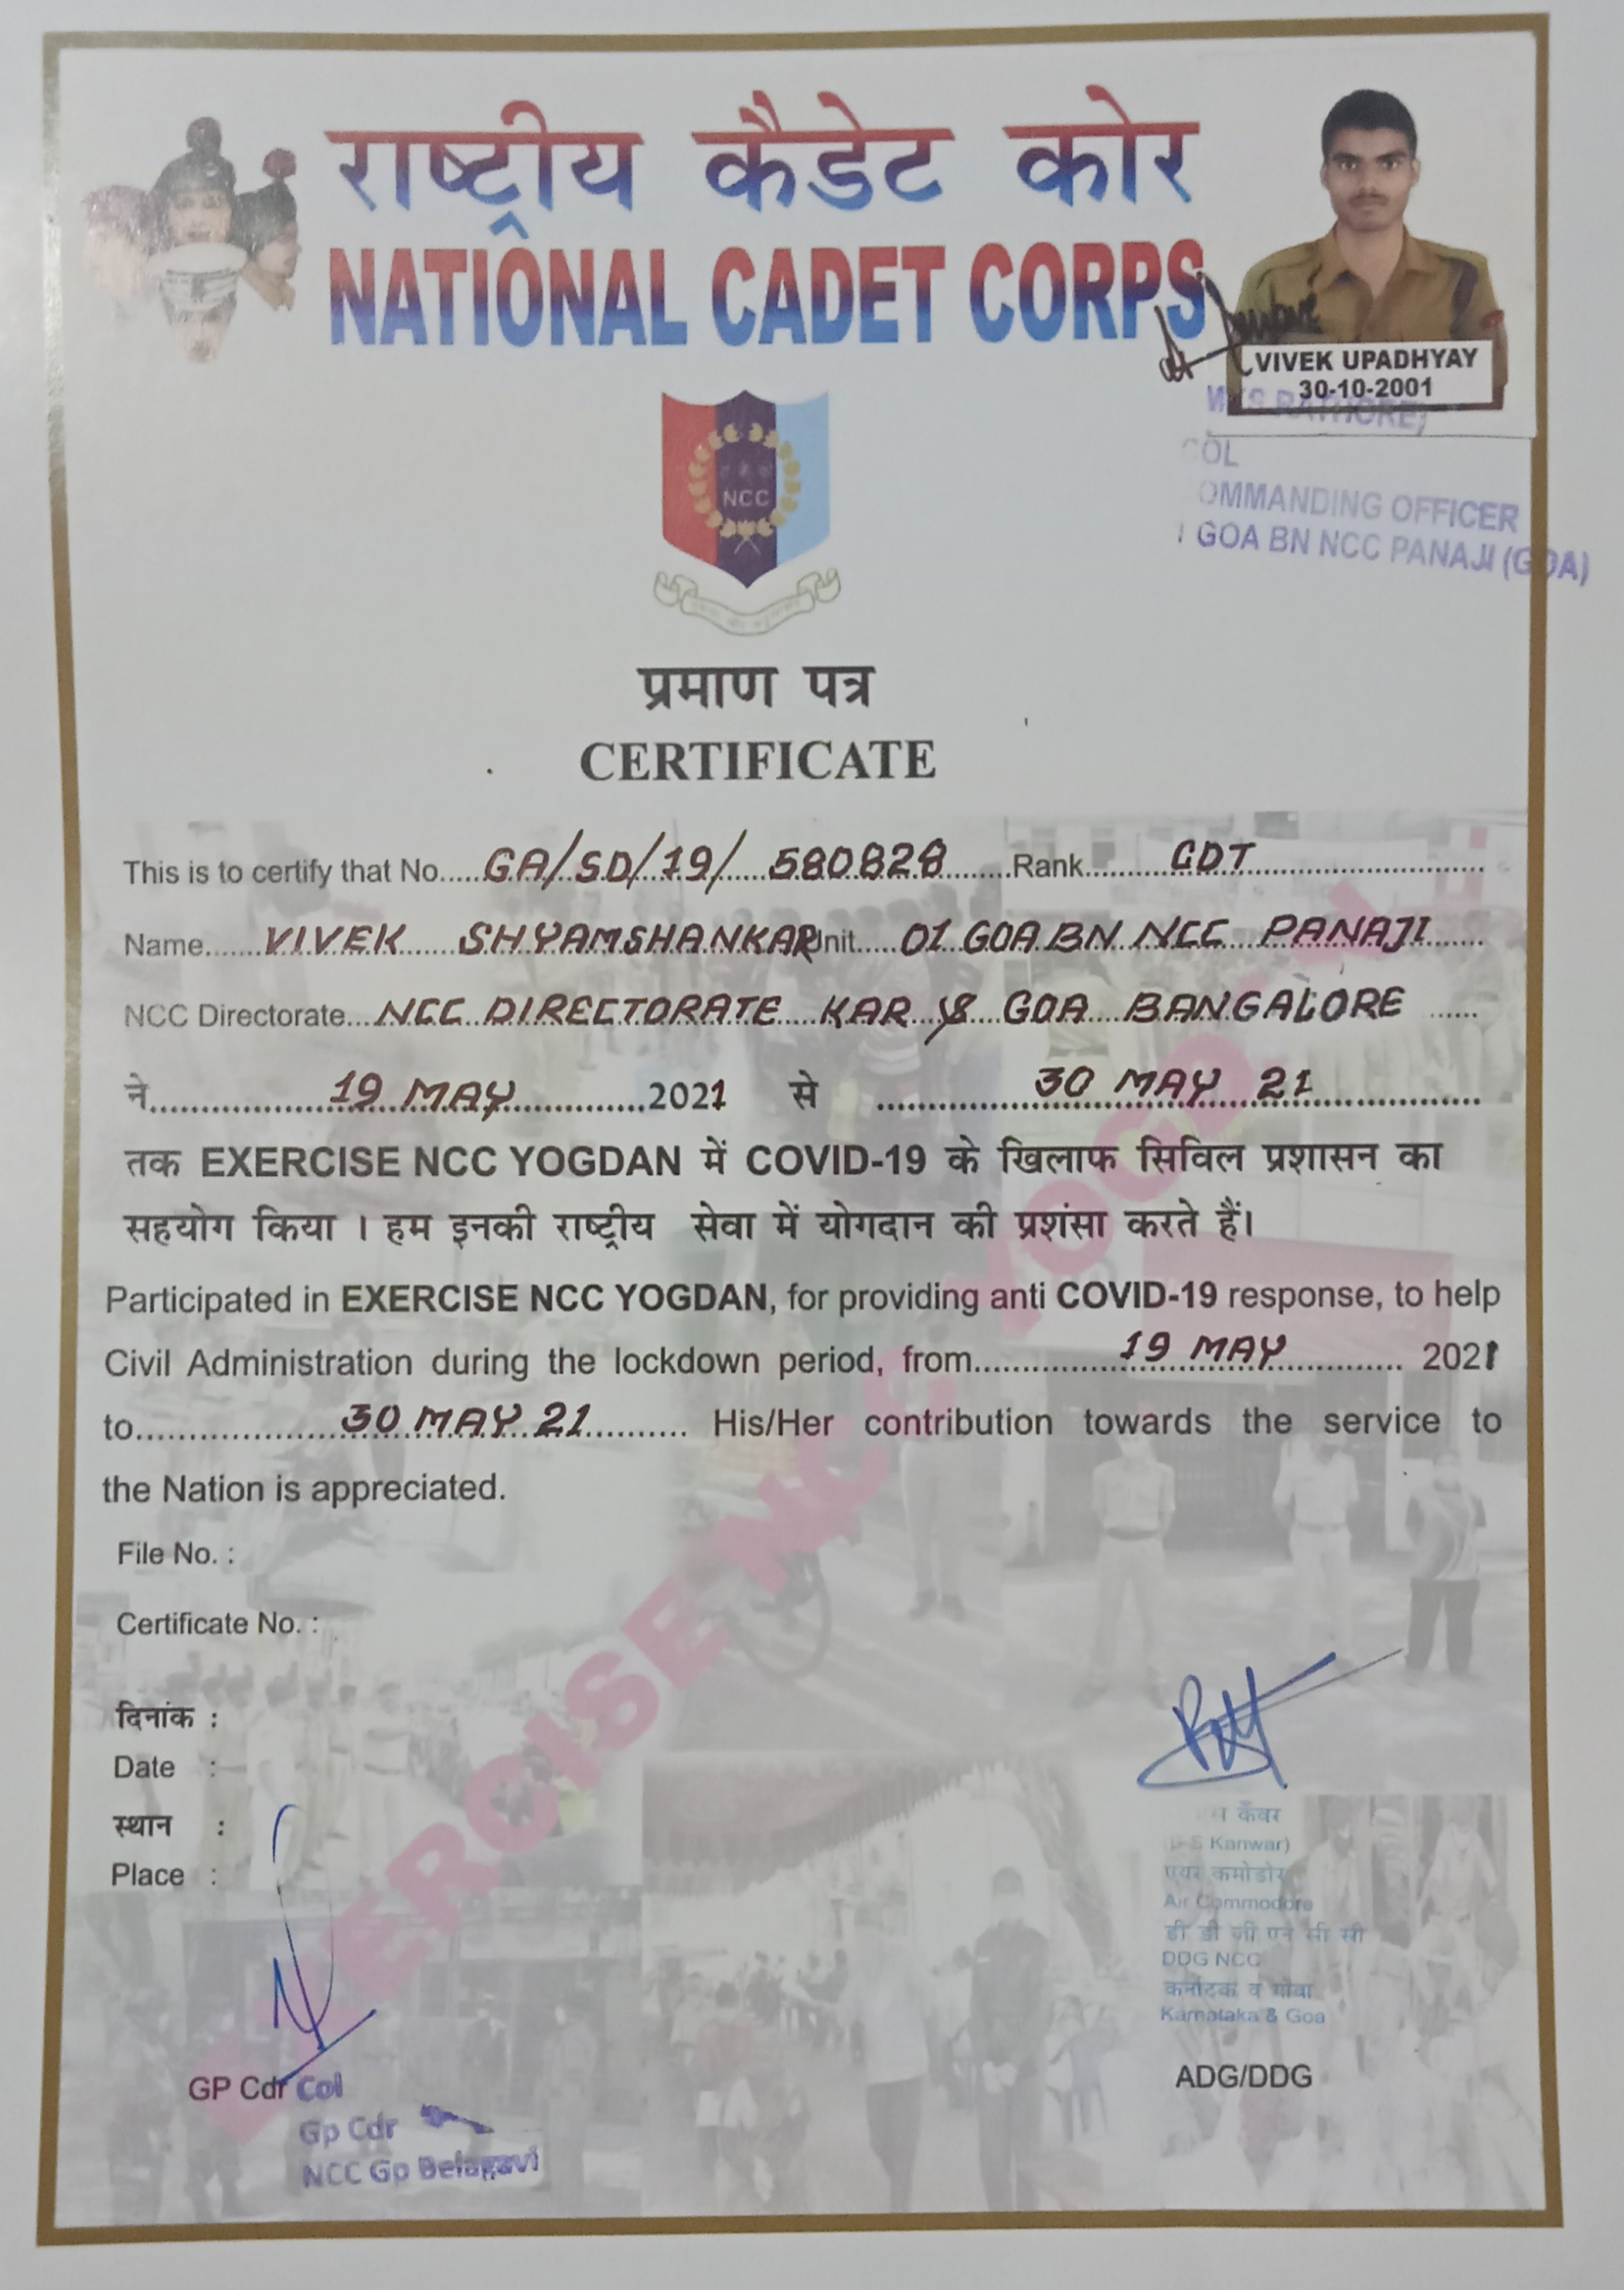 राष्ट्रीय कैडेट कोर
NATIONAL CADET CORPS
VIVEK UPADHYAY
30-10-2001
RATHORE)
COL
OMMANDING OFFICER
1 GOA BN NCC PANAJI (GOA)
NCC
प्रमाण पत्र
CERTIFICATE
This is to certify that No. GA/SD/19/ 580828 Rank CDT
Name VIVEK SHYAMSHANKAR Unit 01 GOA BN NCC PANAJI
NCC Directorate NCC DIRECTORATE KAR & GOA BANGALORE
ने 19 MAY 2021 से 30 MAY 21
तक EXERCISE NCC YOGDAN में COVID-19 के खिलाफ सिविल प्रशासन का
सहयोग किया । हम इनकी राष्ट्रीय सेवा में योगदान की प्रशंसा करते हैं।
Participated in EXERCISE NCC YOGDAN, for providing anti COVID-19 response, to help
Civil Administration during the lockdown period, from 19 MAY 2021
to 30 MAY 21 His/Her contribution towards the service to
the Nation is appreciated.
File No. :
Certificate No. :
दिनांक :
Date :
स्थान :
Place :
EXERCISE NCC YOGDAN
कँवर
S Kanwar)
एयर कमोडोर
Air Commodore
डी डी जी एन सी सी
DDG NCC
कर्नाटक व गोवा
Karnataka & Goa
ADG/DDG
GP Cdr Col
Gp Cdr
NCC Gp Belagavi